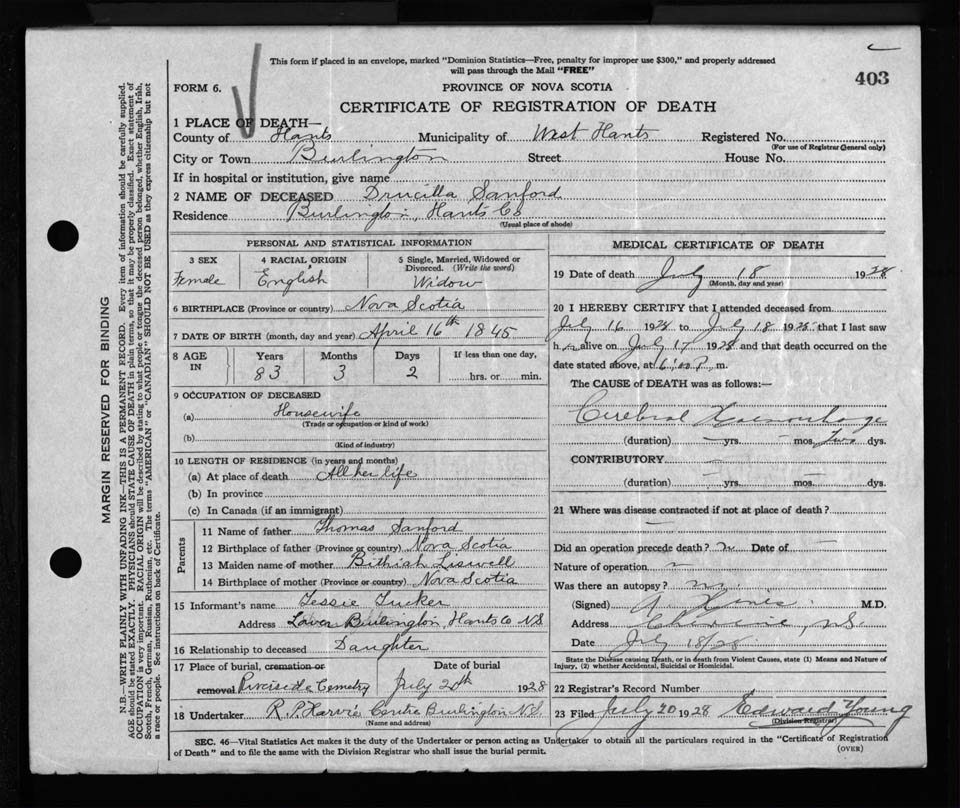 This form if placed in an envelope, marked "Dominion Statistics—Free, penalty for improper use $300," and properly addressed
will pass through the Mail "FREE"
403
FORM 6.
PROVINCE OF NOVA SCOTIA
CERTIFICATE OF REGISTRATION OF DEATH
1 PLACE OF DEATH—
County of Hants Municipality of West Hants Registered No.
(For use of Registrar General only)
City or Town Burlington Street House No.
If in hospital or institution, give name
2 NAME OF DECEASED Drucilla Sanford
Residence Burlington, Hants Co
(Usual place of abode)
PERSONAL AND STATISTICAL INFORMATION
3 SEX 4 RACIAL ORIGIN 5 Single, Married, Widowed or
Divorced. (Write the word)
Female English Widow
6 BIRTHPLACE (Province or country) Nova Scotia
7 DATE OF BIRTH (month, day and year) April 16th 1845
8 AGE IN Years Months Days If less than one day,
83 3 2 hrs. or min.
9 OCCUPATION OF DECEASED
(a) Housewife
(Trade or occupation or kind of work)
(b)
(Kind of industry)
10 LENGTH OF RESIDENCE (in years and months)
(a) At place of death All her life
(b) In province
(c) In Canada (if an immigrant)
Parents
11 Name of father Thomas Sanford
12 Birthplace of father (Province or country) Nova Scotia
13 Maiden name of mother Bithiah
14 Birthplace of mother (Province or country) Nova Scotia
15 Informant's name Jessie Tucker
Address Lower Burlington, Hants Co N.S
16 Relationship to deceased Daughter
17 Place of burial, cremation or Date of burial
removal Cemetry July 20th 1928
18 Undertaker R.P. Harvie Centre Burlington N.S.
(Name and address)
MEDICAL CERTIFICATE OF DEATH
19 Date of death July 18 1928
(Month, day and year)
20 I HEREBY CERTIFY that I attended deceased from
July 16 1928 to July 18 1928 that I last saw
h er alive on July 17 1928 and that death occurred on the
date stated above, at 6:00 P. m.
The CAUSE of DEATH was as follows:—
Cerebral Haemorrhage
(duration) — yrs. — mos. Two dys.
CONTRIBUTORY —
(duration) — yrs. — mos. — dys.
21 Where was disease contracted if not at place of death?
—
Did an operation precede death? No Date of —
Nature of operation —
Was there an autopsy? No
(Signed) M.D.
Address N.S.
Date July 18/28
State the Disease causing Death, or in death from Violent Causes, state (1) Means and Nature of
Injury, (2) whether Accidental, Suicidal or Homicidal.
22 Registrar's Record Number
23 Filed July 20 1928 Edward Young
(Division Registrar)
SEC. 46—Vital Statistics Act makes it the duty of the Undertaker or person acting as Undertaker to obtain all the particulars required in the "Certificate of Registration
of Death" and to file the same with the Division Registrar who shall issue the burial permit.
(OVER)
MARGIN RESERVED FOR BINDING
N.B.—WRITE PLAINLY WITH UNFADING INK—THIS IS A PERMANENT RECORD. Every item of information should be carefully supplied.
AGE should be stated EXACTLY. PHYSICIANS should STATE CAUSE OF DEATH in plain terms, so that it may be properly classified. Exact statement of
OCCUPATION is very important. RACIAL ORIGIN will be described by stating to what people or tongue the deceased person belonged, whether English, Irish,
Scotch, French, German, Russian, Ruthenian, etc. The terms "AMERICAN" or "CANADIAN" SHOULD NOT BE USED as they express citizenship but not
a race or people. See instructions on back of Certificate.